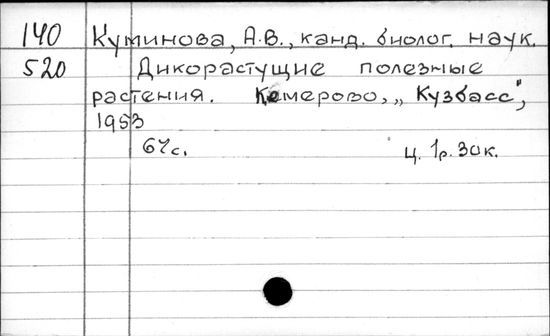 140 Куминова, А.В., канд. биолог. наук.
520 Дикорастущие полезные
растения. Кемерово, „Кузбасс",
1953
64с. ц. 1р. 30к.